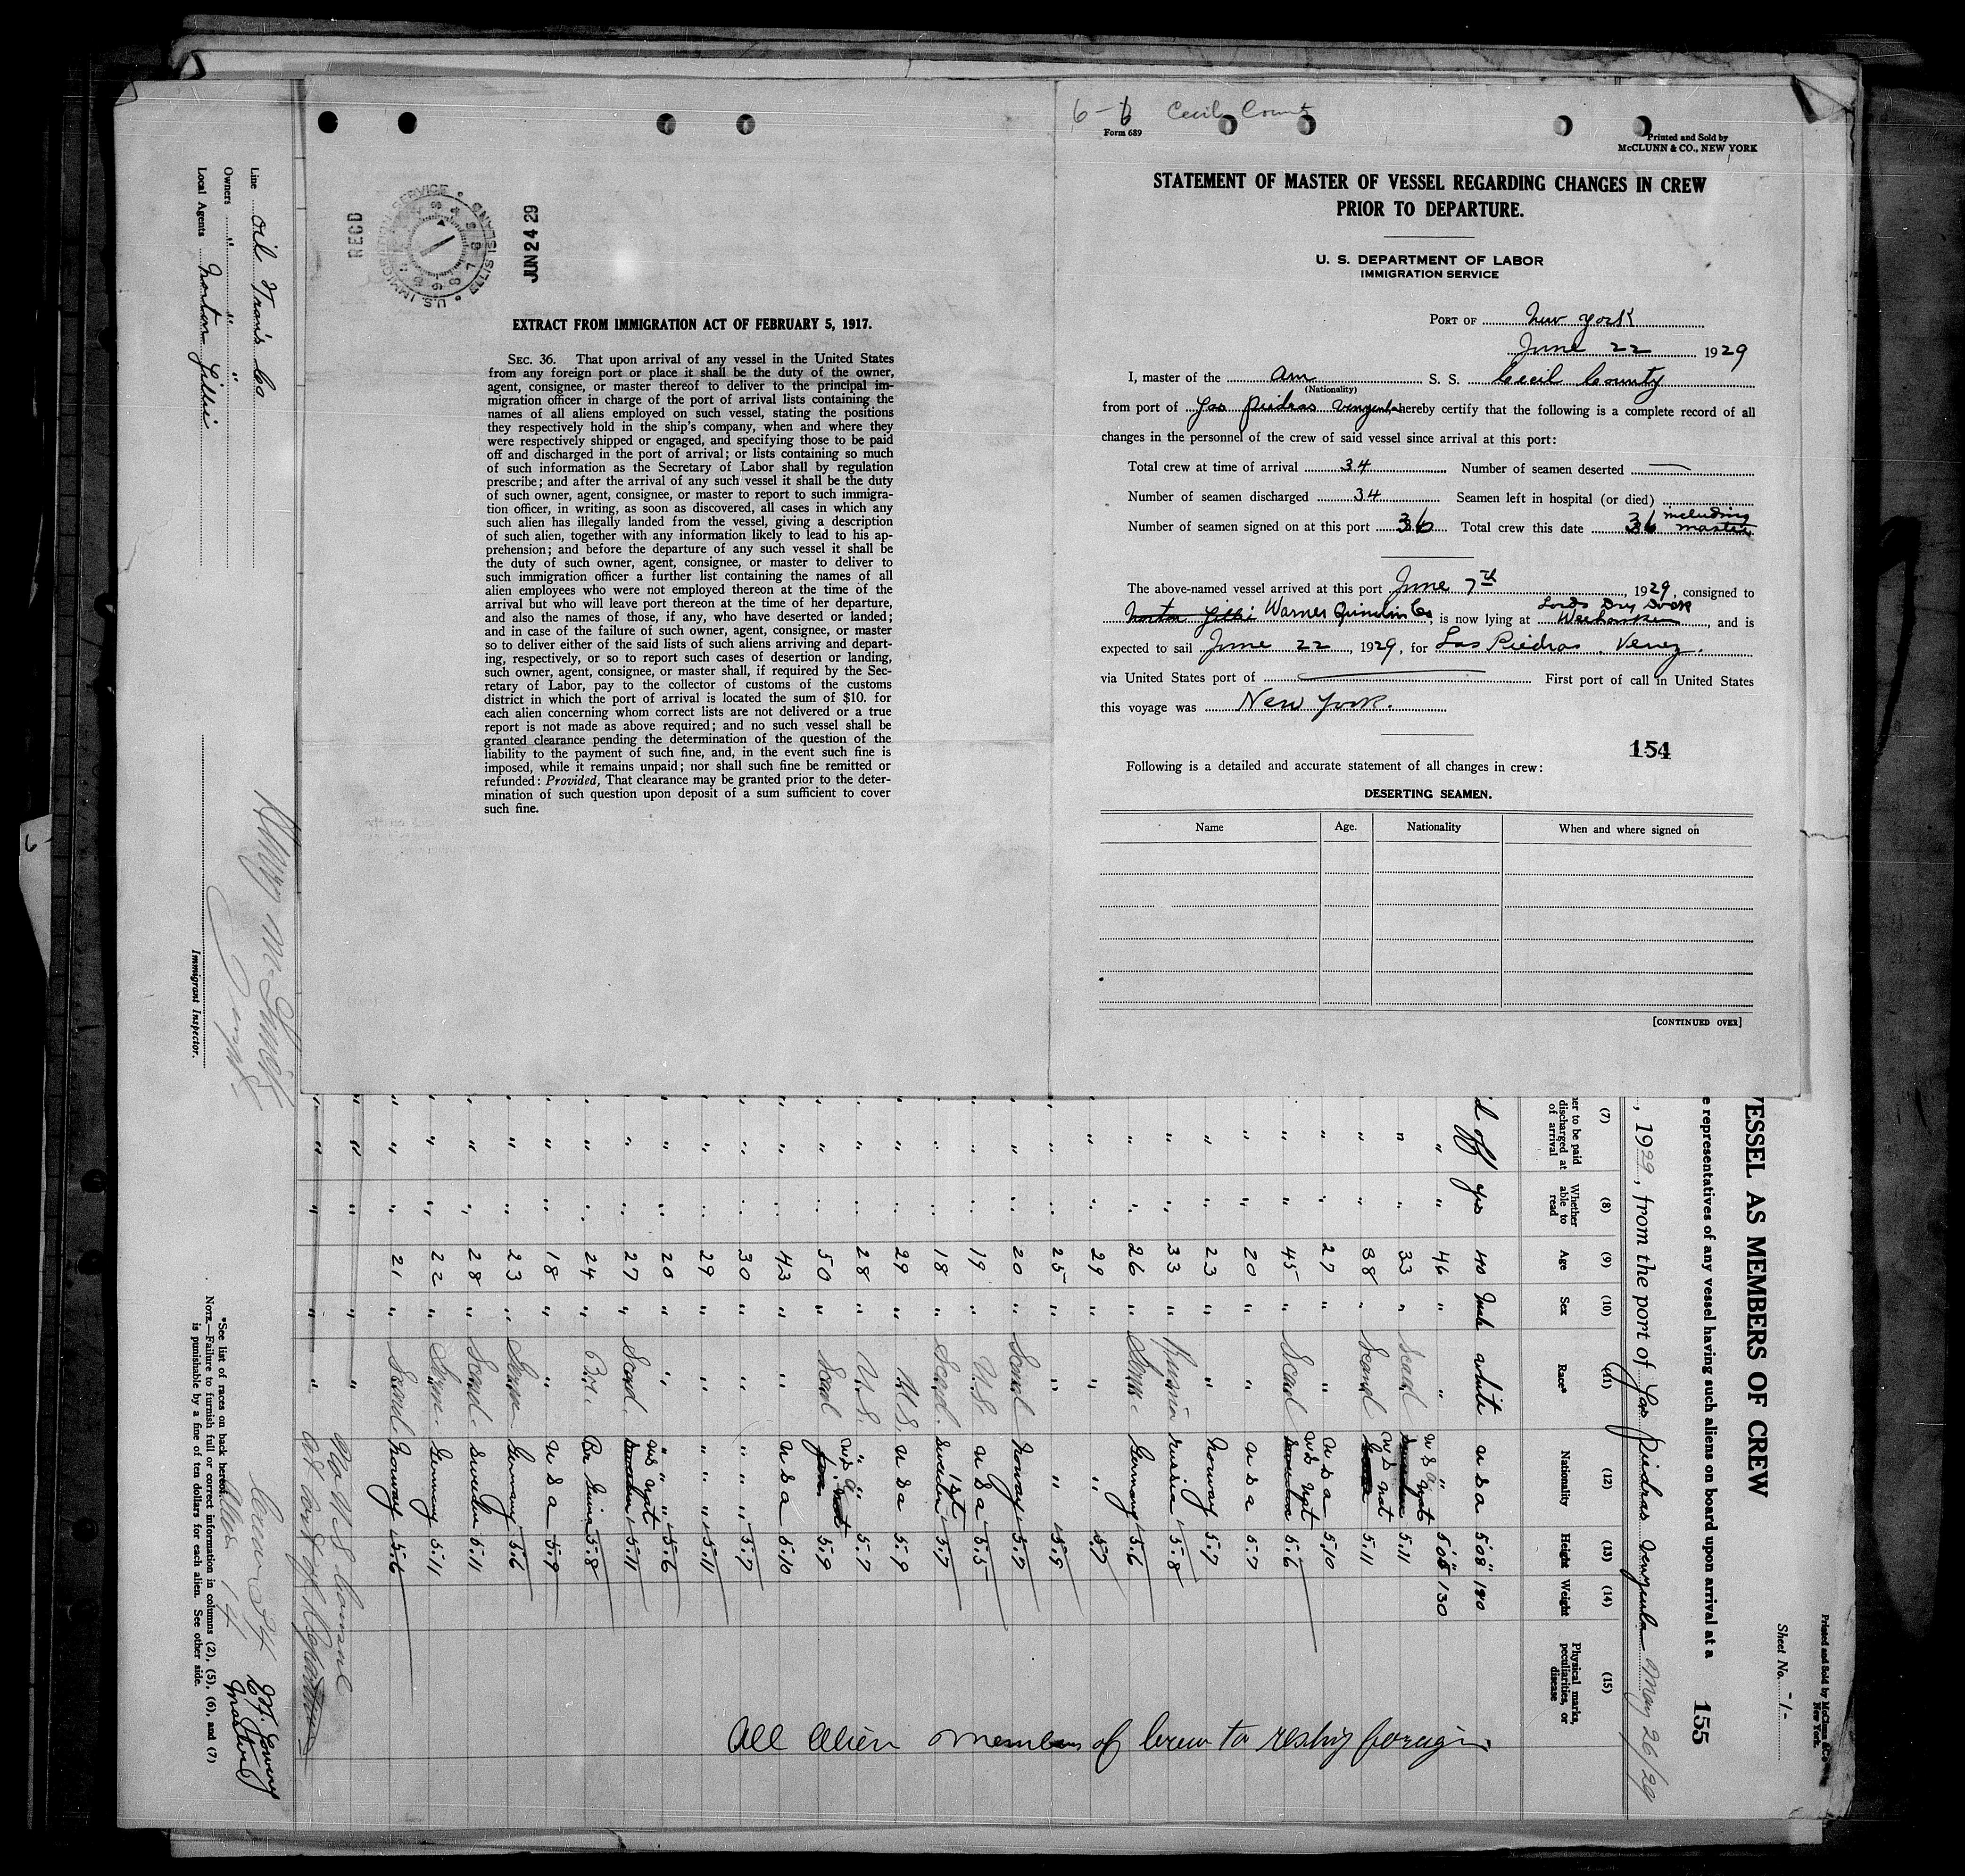 6-6 Cecil County
Form 689
Printed and Sold by
McCLUNN & CO., NEW YORK
STATEMENT OF MASTER OF VESSEL REGARDING CHANGES IN CREW
PRIOR TO DEPARTURE.
U. S. DEPARTMENT OF LABOR
IMMIGRATION SERVICE
PORT OF New York
June 22 1929
I, master of the Am S. S. Cecil County
(Nationality)
from port of Las Piedras hereby certify that the following is a complete record of all
changes in the personnel of the crew of said vessel since arrival at this port:
Total crew at time of arrival 34 Number of seamen deserted —
Number of seamen discharged 34 Seamen left in hospital (or died)
Number of seamen signed on at this port 36 Total crew this date 36 including master
The above-named vessel arrived at this port June 7th, 1929, consigned to
Warner Quinlin Co, is now lying at Lords Dry Dock Weehawken, and is
expected to sail June 22, 1929, for Las Piedras. Venez.
via United States port of — First port of call in United States
this voyage was New York.
154
Following is a detailed and accurate statement of all changes in crew:
DESERTING SEAMEN.
Name Age. Nationality When and where signed on
[CONTINUED OVER]
RECD
U.S. IMMIGRATION SERVICE • ELLIS ISLAND •
JUN 24 29
EXTRACT FROM IMMIGRATION ACT OF FEBRUARY 5, 1917.
SEC. 36. That upon arrival of any vessel in the United States
from any foreign port or place it shall be the duty of the owner,
agent, consignee, or master thereof to deliver to the principal im-
migration officer in charge of the port of arrival lists containing the
names of all aliens employed on such vessel, stating the positions
they respectively hold in the ship's company, when and where they
were respectively shipped or engaged, and specifying those to be paid
off and discharged in the port of arrival; or lists containing so much
of such information as the Secretary of Labor shall by regulation
prescribe; and after the arrival of any such vessel it shall be the duty
of such owner, agent, consignee, or master to report to such immigra-
tion officer, in writing, as soon as discovered, all cases in which any
such alien has illegally landed from the vessel, giving a description
of such alien, together with any information likely to lead to his ap-
prehension; and before the departure of any such vessel it shall be
the duty of such owner, agent, consignee, or master to deliver to
such immigration officer a further list containing the names of all
alien employees who were not employed thereon at the time of the
arrival but who will leave port thereon at the time of her departure,
and also the names of those, if any, who have deserted or landed;
and in case of the failure of such owner, agent, consignee, or master
so to deliver either of the said lists of such aliens arriving and depart-
ing, respectively, or so to report such cases of desertion or landing,
such owner, agent, consignee, or master shall, if required by the Sec-
retary of Labor, pay to the collector of customs of the customs
district in which the port of arrival is located the sum of $10. for
each alien concerning whom correct lists are not delivered or a true
report is not made as above required; and no such vessel shall be
granted clearance pending the determination of the question of the
liability to the payment of such fine, and, in the event such fine is
imposed, while it remains unpaid; nor shall such fine be remitted or
refunded: Provided, That clearance may be granted prior to the deter-
mination of such question upon deposit of a sum sufficient to cover
such fine.
Printed and Sold by McClunn & Co.
New York.
Sheet No. -1-
ESSEL AS MEMBERS OF CREW
155
e representatives of any vessel having such aliens on board upon arrival at a
, 1929, from the port of Las Piedras May 26/29
(7) (8) (9) (10) (11) (12) (13) (14) (15)
her to be paid discharged at of arrival
Whether able to read
Age
Sex
Race*
Nationality
Height
Weight
Physical marks, peculiarities, or disease
d off yes 40 Male white U S a 5'08" 190
" " 46 " " " 5'05" 130
" " 33 " Scand 5.11
" " 38 " Scand 5.11
" " 27 " " U S a 5.10
" " 45 " Scand 5.6
" " 20 " " U S a 5.7
" " 23 " " Norway 5.7
" " 33 " Russia 5.8
" " 26 " Germany 5.6
" " 29 " " " 5.7
" " 25 " " " 5.9
" " 20 " Scand Norway 5.7
" " 19 " U.S. U S a 5.5
" " 18 " Scand. 5.7
" " 29 " U S U S a 5.9
" " 28 " U.S. " 5.7
" " 50 " Scand 5.9
" " 43 " " U S a 5.10
" " 30 " " " 5.7
" " 29 " " " 5.11
" " 20 " " " 5.6
" " 27 " Scand. 5.11
" " 24 " 5.8
" " 18 " " U S a 5.9
" " 23 " Germany 5.6
" " 28 " Scand. Sweden 5.11
" " 22 " Germany 5.11
" " 21 " Scand Norway 5.6
All Alien Members of Crew to reship foreign
No U S Consul
at
Crew 34
Alien 14
Master
*See list of races on back hereof.
NOTE.—Failure to furnish full or correct information in columns (2), (5), (6), and (7)
is punishable by a fine of ten dollars for each alien. See other side.
Line Oil Trans Co
Owners " " "
Local Agents Norton Lillie
Immigrant Inspector.